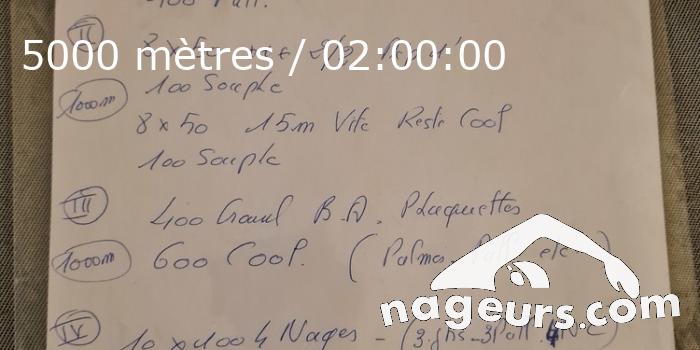 100 Pull.
II
5000 mètres / 02:00:00
8 x 50
1000m 100 Souple
8 x 50 15m Vite Reste Cool
100 Souple
III
400 Crawl B.A. Plaquettes
1000m 600 Cool. (Palmes. Pull. etc)
nageurs.com
IV
10 x 100 4 Nages - (3. 3 Pull. 4 N.C)